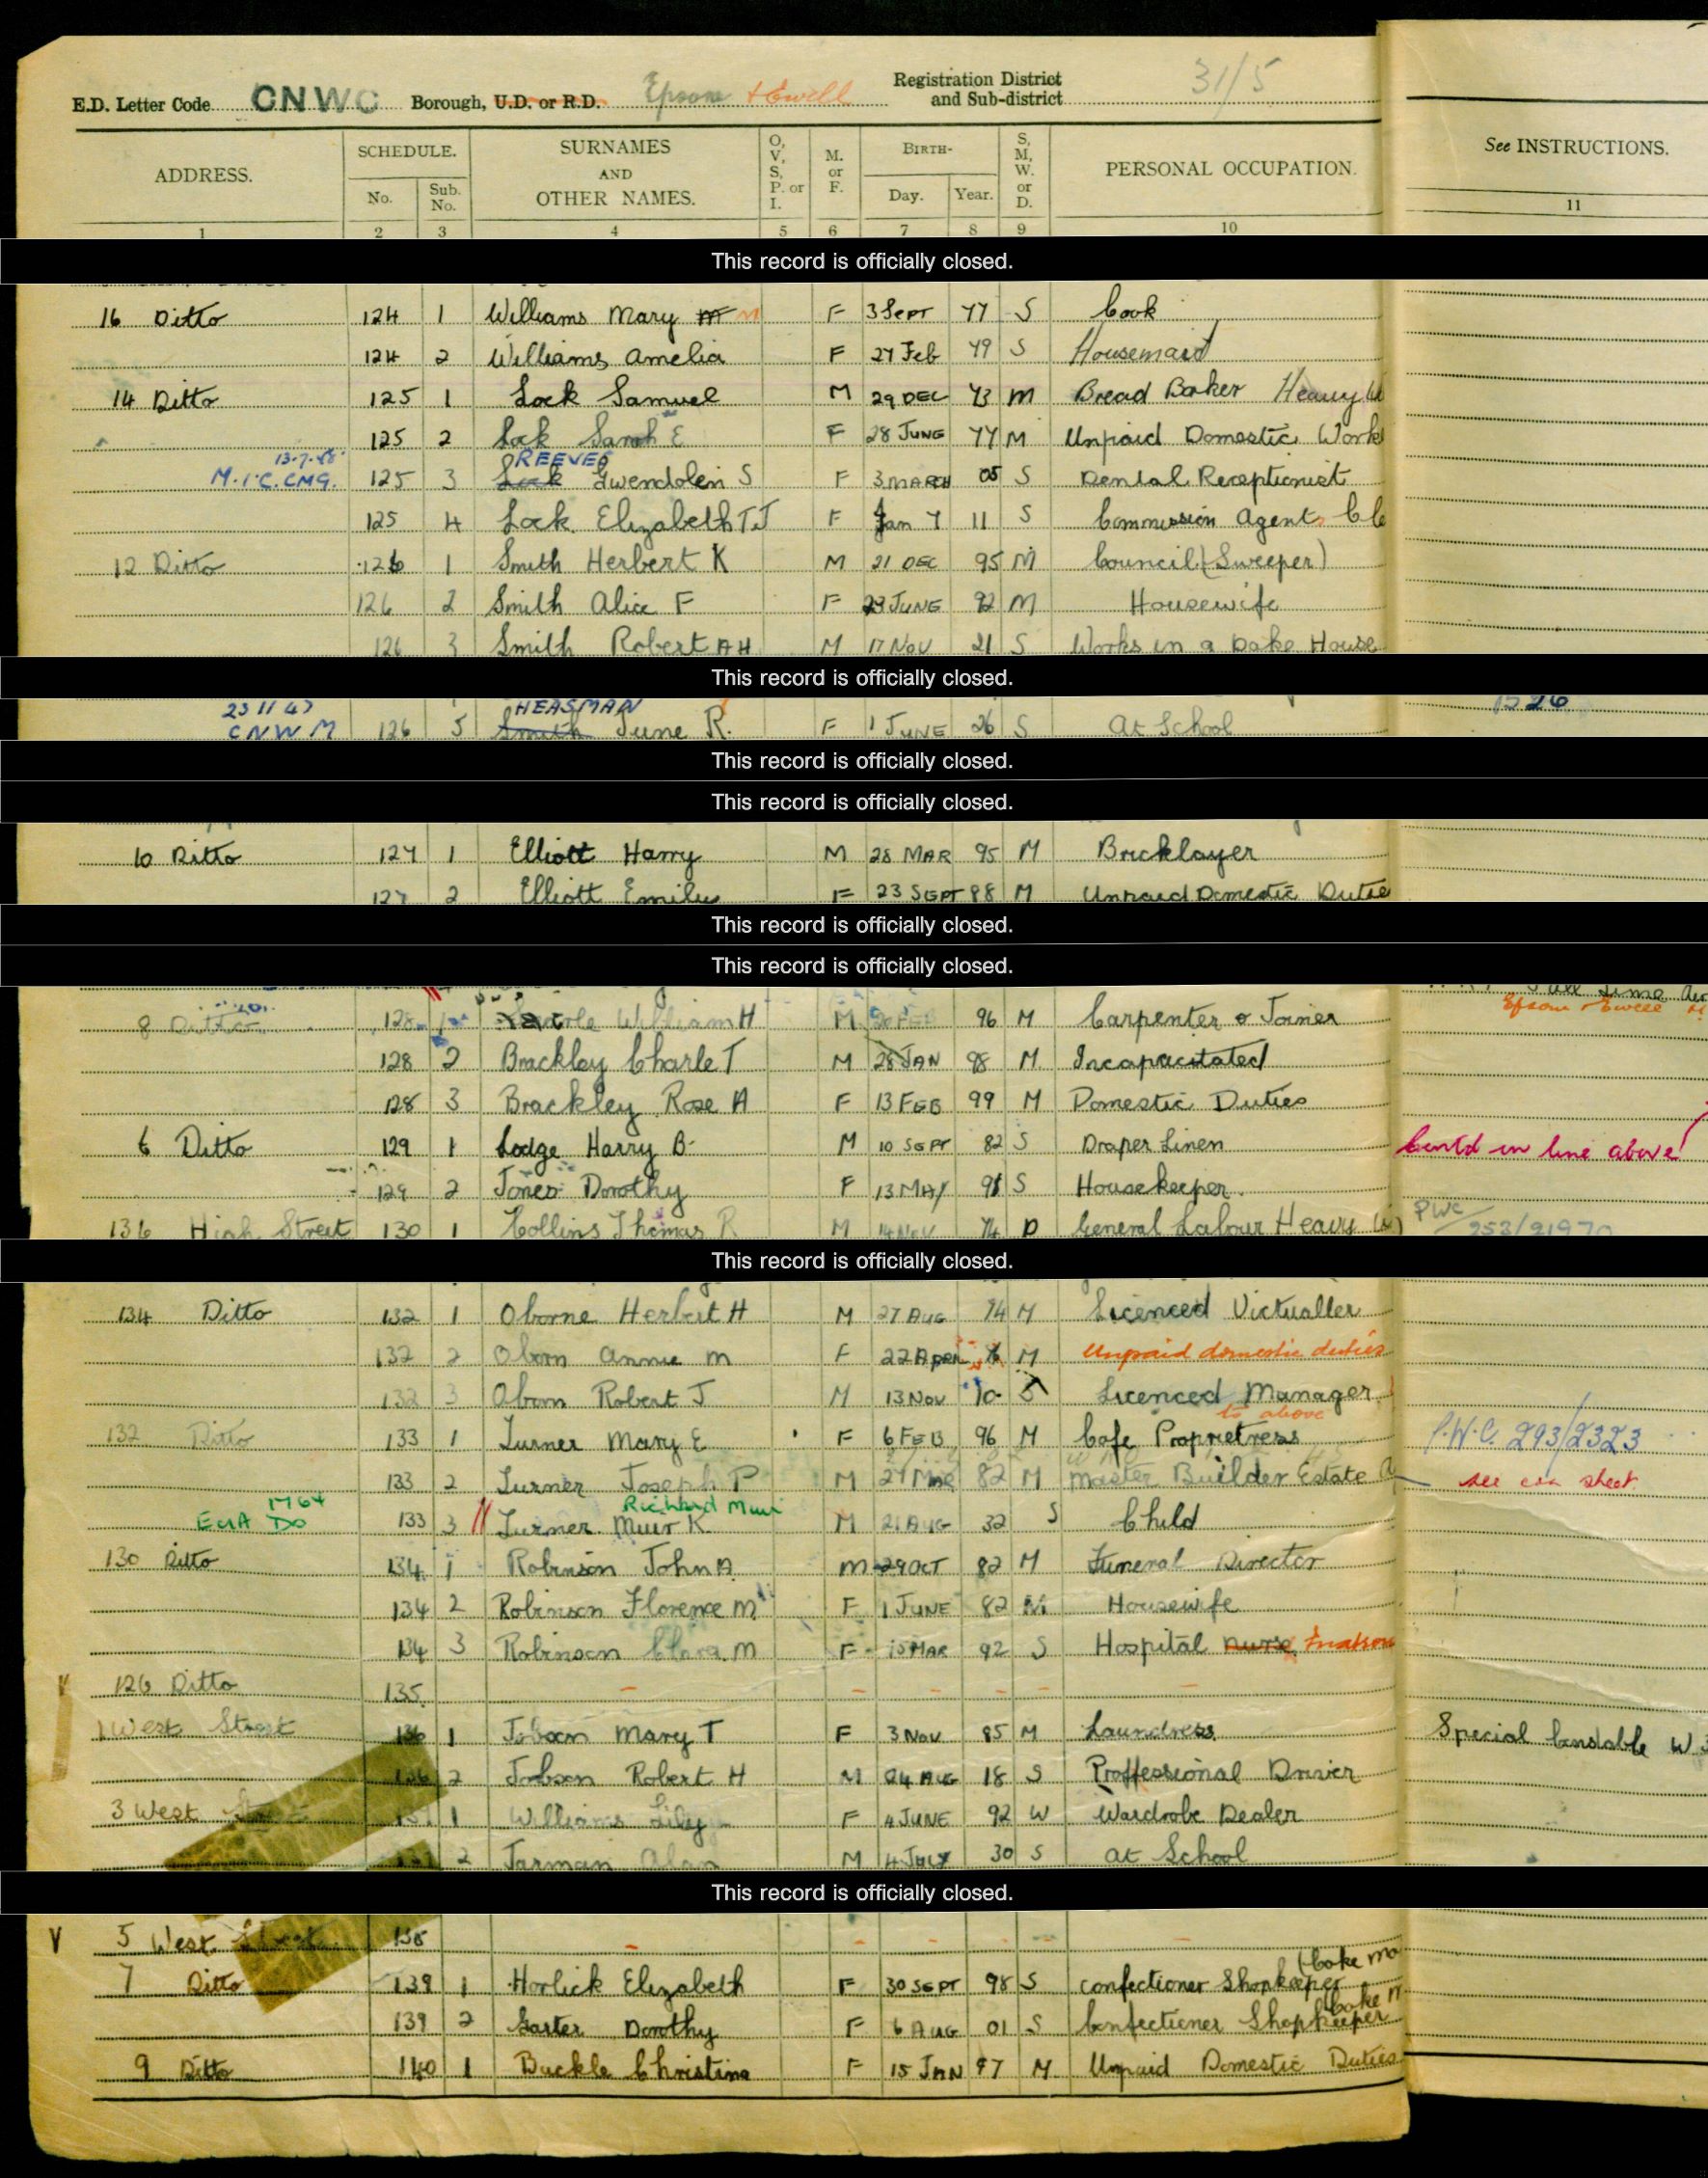 E.D. Letter Code CNWC Borough, U.D. or R.D. Epsom + Ewell Registration District and Sub-district 31/5
ADDRESS. SCHEDULE. No. Sub. No. SURNAMES AND OTHER NAMES. O, V, S, P. or I. M. or F. BIRTH- Day. Year. S, M, W. or D. PERSONAL OCCUPATION. See INSTRUCTIONS.
1 2 3 4 5 6 7 8 9 10 11
This record is officially closed.
16 Ditto 124 1 Williams Mary M F 3 Sept 77 S Cook
124 2 Williams Amelia F 27 Feb 79 S Housemaid
14 Ditto 125 1 Lock Samuel M 29 DEC 73 M Bread Baker Heavy W
125 2 Lock Sarah E F 28 JUNE 77 M Unpaid Domestic Work
13.7.
REEVES
M.I.C. CMG. 125 3 Lock Gwendolen S F 3 MARCH 05 S Dental Receptionist
125 4 Lock Elizabeth T.J F Jan 7 11 S Commission Agents Cle
12 Ditto 126 1 Smith Herbert K M 21 DEC 95 M Council (Sweeper)
126 2 Smith Alice F F 23 JUNE 92 M Housewife
126 3 Smith Robert A H M 17 NOV 21 S Works in a Bake House
This record is officially closed.
23 11 47 HEASMAN
CNWM 126 5 Smith June R. F 1 JUNE 26 S At School
This record is officially closed.
This record is officially closed.
10 Ditto 127 1 Elliott Harry M 28 MAR 95 M Bricklayer
127 2 Elliott Emily F 23 SEPT 88 M Unpaid Domestic Dutie
This record is officially closed.
This record is officially closed.
Epsom & Ewell
8 Ditto 128 1 William H M FEB 96 M Carpenter & Joiner
128 2 Brackley Charle T M 28 JAN 98 M. Incapacitated
128 3 Brackley Rose A F 13 FEB 99 M Domestic Duties
6 Ditto 129 1 Lodge Harry B M 10 SEPT 82 S Draper Linen Contd in line above
129 2 Jones Dorothy F 13 MAY 91 S Housekeeper.
136 High Street 130 1 Collins Thomas R M 14 NOV 74 D General Labour Heavy W PWC 253/21970
This record is officially closed.
134 Ditto 132 1 Oborne Herbert H M 27 AUG 74 M Licenced Victualler
132 2 Oborn Annie M F 22 Apr M Unpaid domestic duties
132 3 Oborn Robert J M 13 NOV 10 S Licenced Manager
to above
132 Ditto 133 1 Turner Mary E F 6 FEB 96 M Cafe Proprietress P.W.C. 293/2323
133 2 Turner Joseph P M 27 Mar 82 M Master Builder Estate A see sheet
1764 Richard Muir
EUA DO 133 3 Turner Muir K M 21 AUG 32 S Child
130 Ditto 134 1 Robinson John A. M 29 OCT 82 M Funeral Director
134 2 Robinson Florence M F 1 JUNE 82 M Housewife
134 3 Robinson Clara M F 15 MAR 92 S Hospital Nurse Matron
V 126 Ditto 135. - - - - -
1 West Street 136 1 Jobson Mary T F 3 NOV 85 M Laundress Special Constable W
136 2 Jobson Robert H M 24 AUG 18 S Proffessional Driver
3 West 137 1 Williams Lily F 4 JUNE 92 W Wardrobe Dealer
137 2 Jarman Alan M 4 JULY 30 S At School
This record is officially closed.
V 5 West Street 138 - - - - -
(Coke Ma
7 Ditto 139 1 Horlick Elizabeth F 30 SEPT 98 S Confectioner Shopkeeper
139 2 Garter Dorothy F 6 AUG 01 S Confectioner Shopkeeper
9 Ditto 140 1 Buckle Christina F 15 JAN 97 M Unpaid Domestic Duties